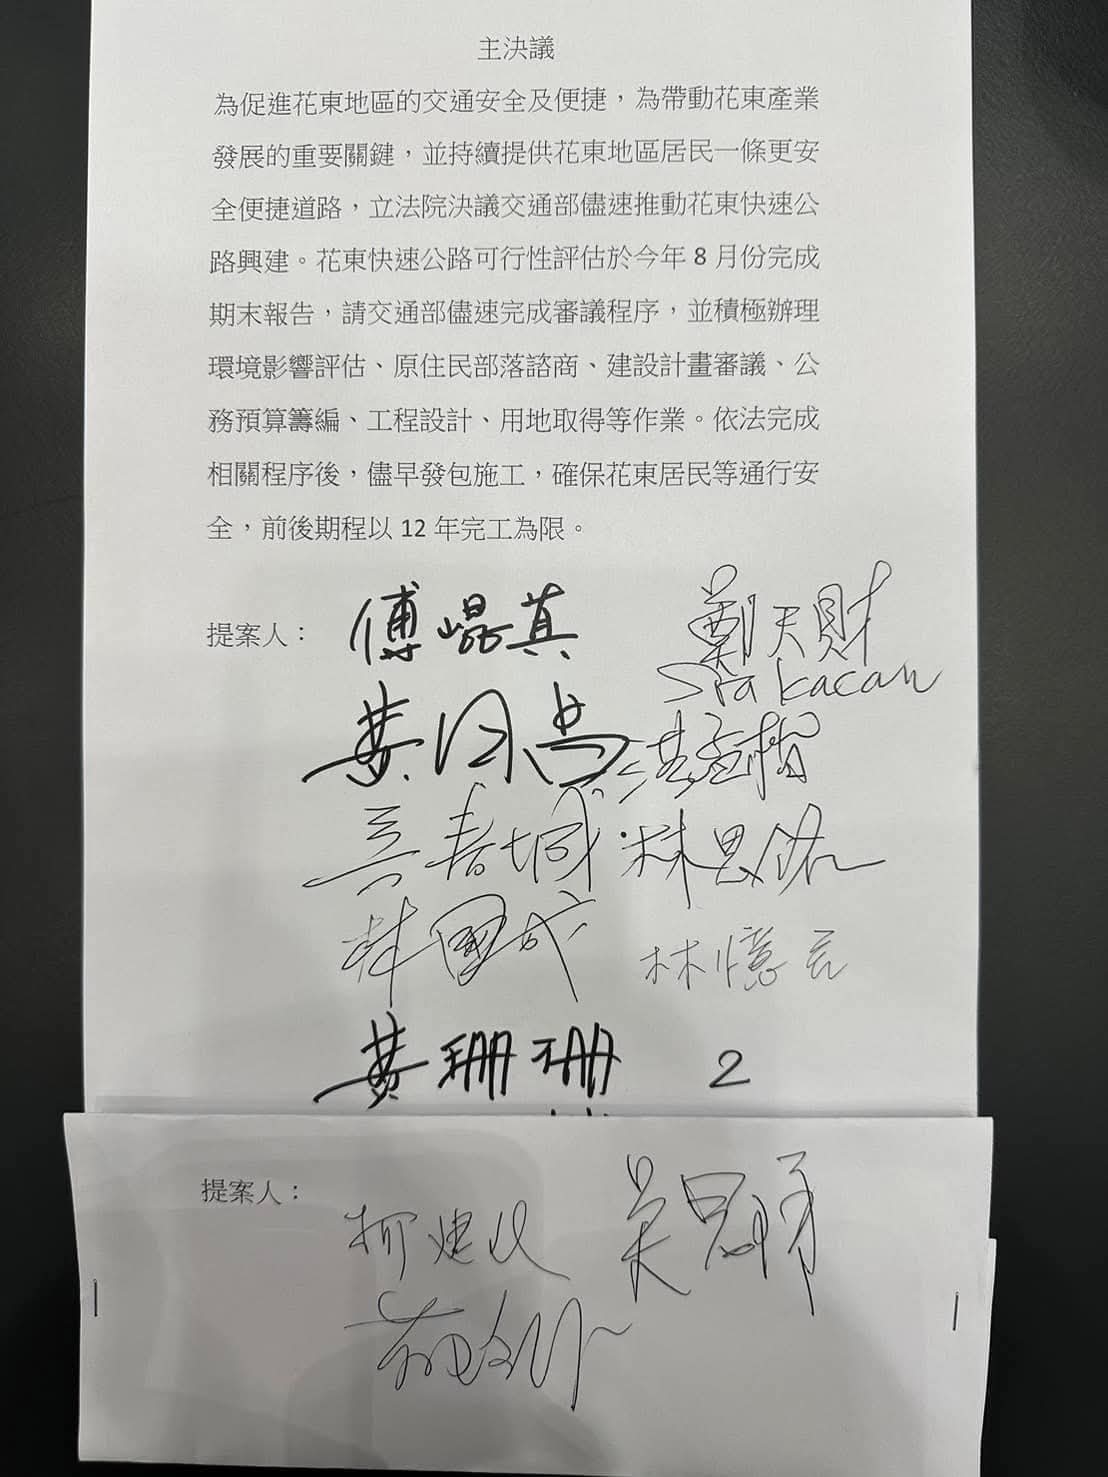 主決議
為促進花東地區的交通安全及便捷，為帶動花東產業
發展的重要關鍵，並持續提供花東地區居民一條更安
全便捷道路，立法院決議交通部儘速推動花東快速公
路興建。花東快速公路可行性評估於今年 8 月份完成
期末報告，請交通部儘速完成審議程序，並積極辦理
環境影響評估、原住民部落諮商、建設計畫審議、公
務預算籌編、工程設計、用地取得等作業。依法完成
相關程序後，儘早發包施工，確保花東居民等通行安
全，前後期程以 12 年完工為限。
提案人： 傅崐萁 鄭天財
Sra Kacaw
洪孟楷
吳春城 林思銘
林國成 林憶君
黃珊珊 2
提案人：